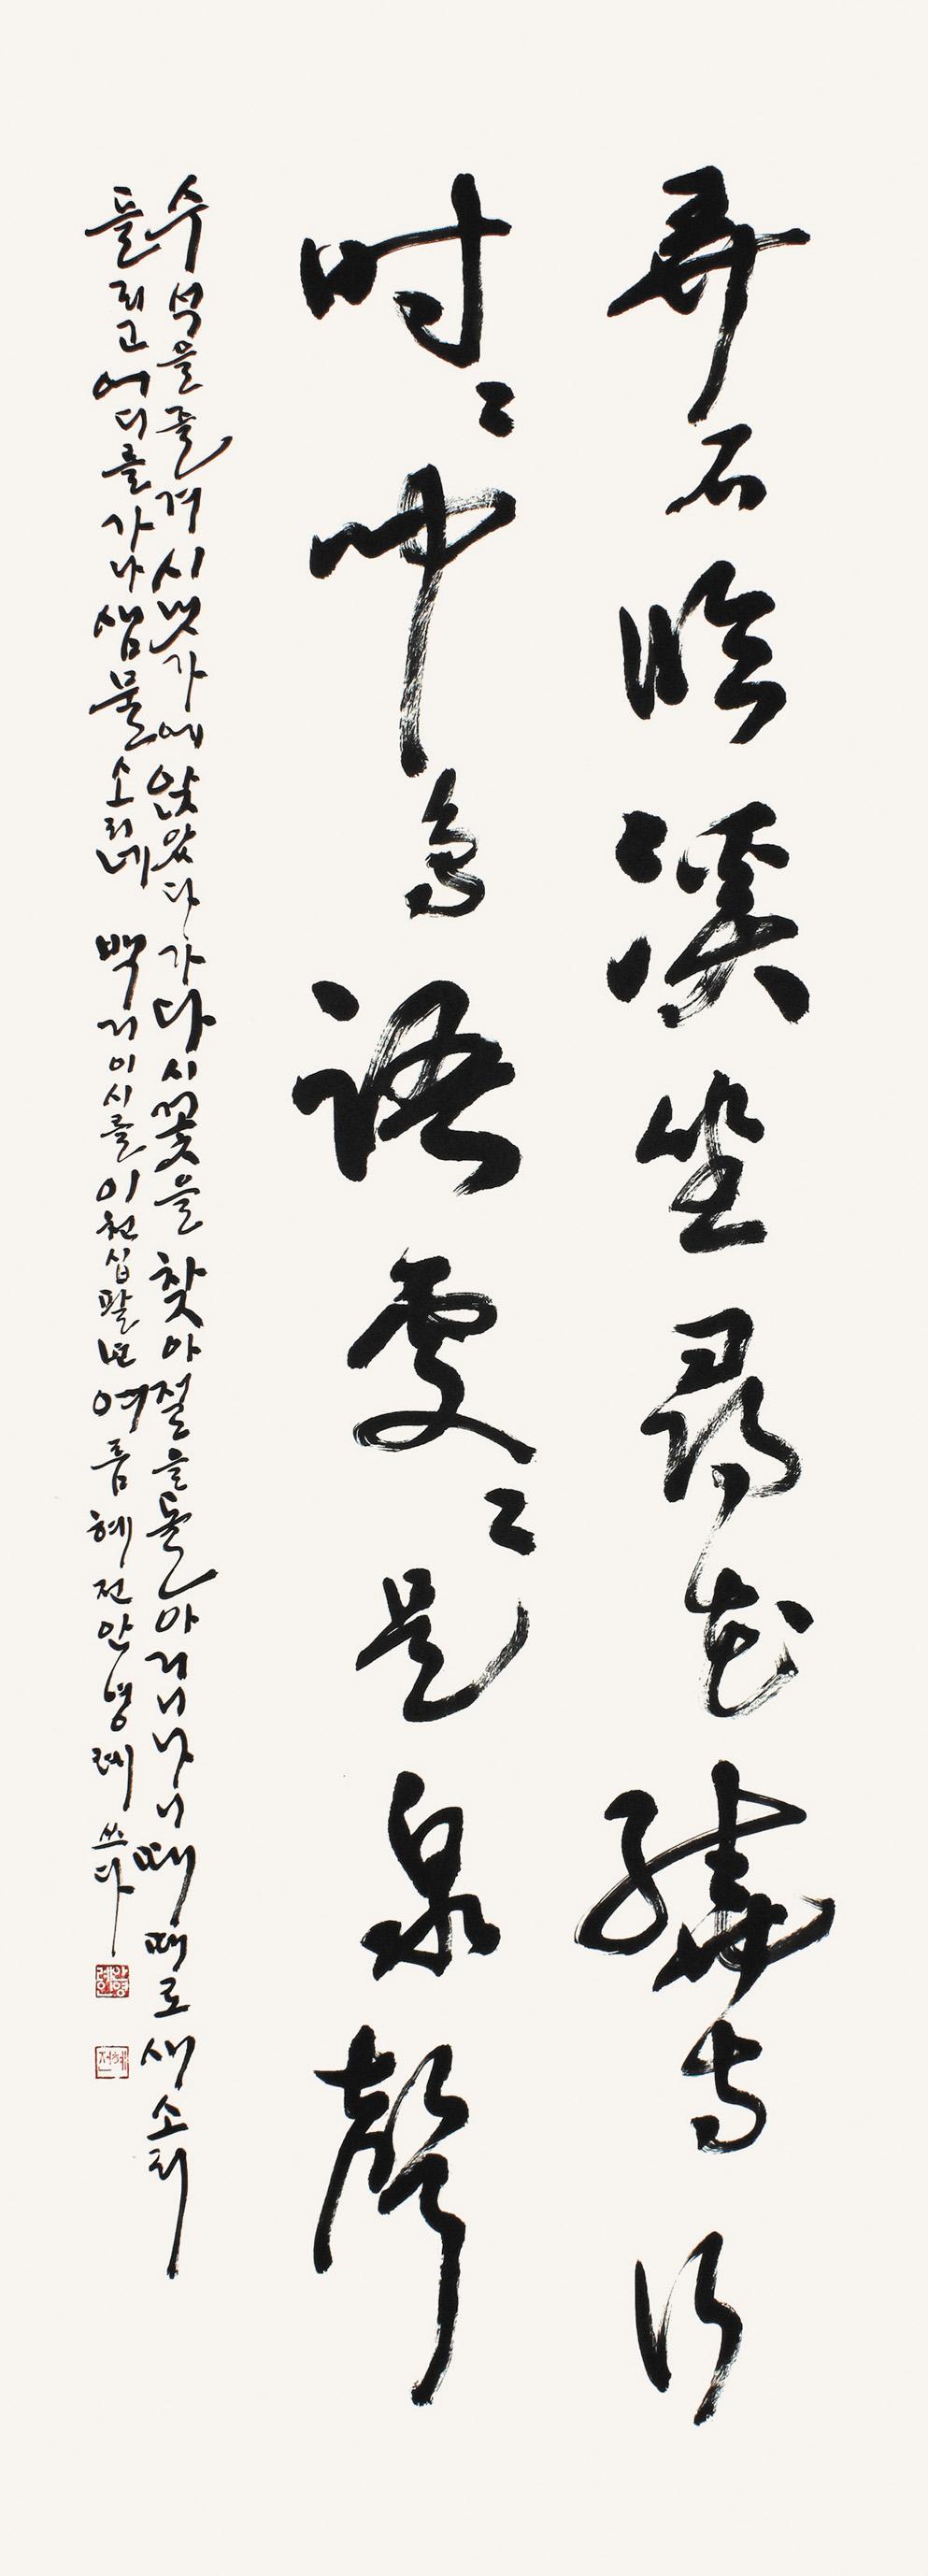 弄石臨溪坐尋花繞寺行
時〻聞鳥語處〻是泉聲
수석을 즐겨 시냇가에 앉았다가 다시 꽃을 찾아 절을 돌아 거니나니 때때로 새소리
들리고 어디를 가나 샘물소리네 백거이시를 이천십팔년 여름 혜전 안영례 쓰다
혜전